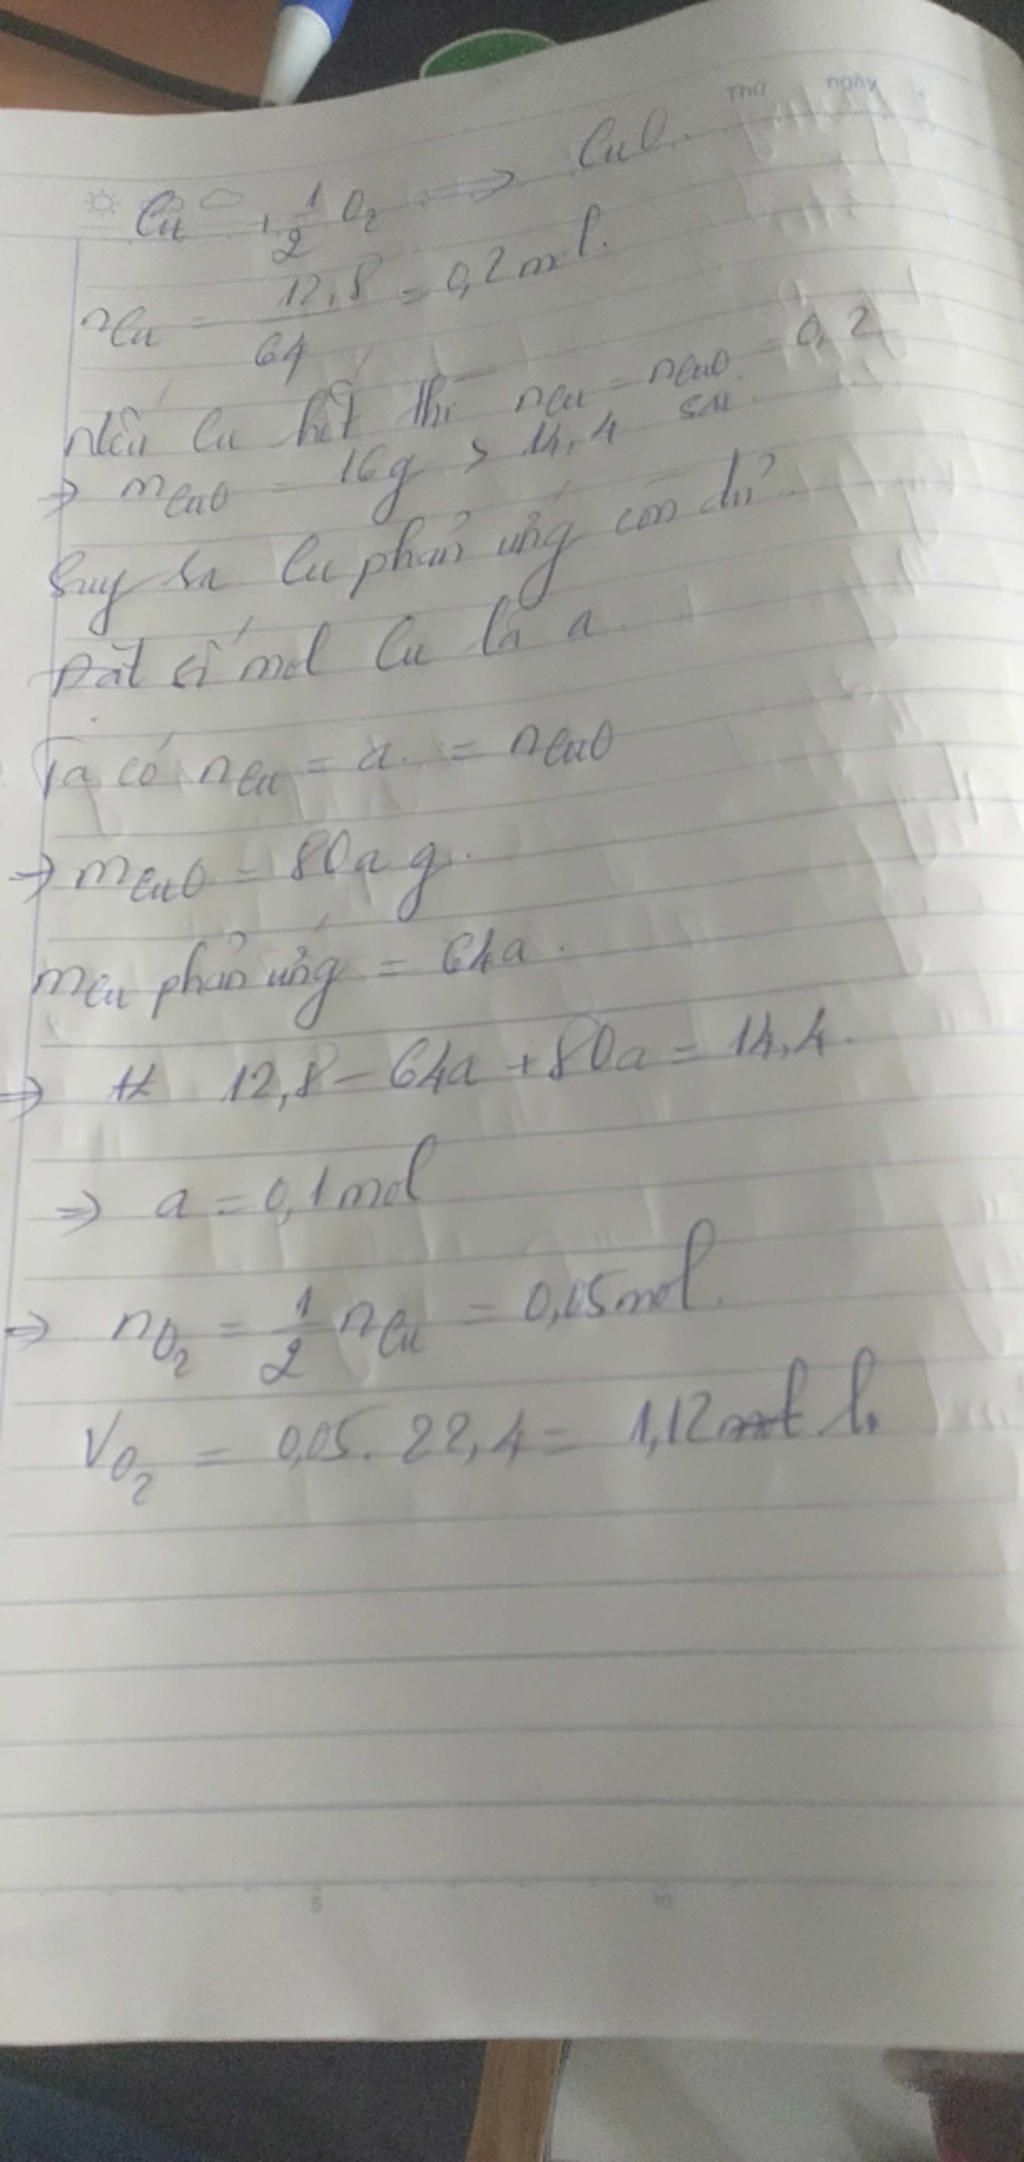 Thứ ngày
Cu + 1/2 O2 => CuO.
nCu = 12,8/64 = 0,2 mol.
Nếu Cu hết thì nCu = nCuO = 0,2
=> mCuO = 16g > 14,4 sai
Suy ra Cu phản ứng còn dư.
Đặt số mol Cu là a.
Ta có nCu = a. = nCuO
=> mCuO = 80a g.
mCu phản ứng = 64a.
=> 12,8 - 64a + 80a = 14,4.
=> a = 0,1 mol
=> nO2 = 1/2 nCu = 0,05 mol.
VO2 = 0,05. 22,4 = 1,12 l.
5 10